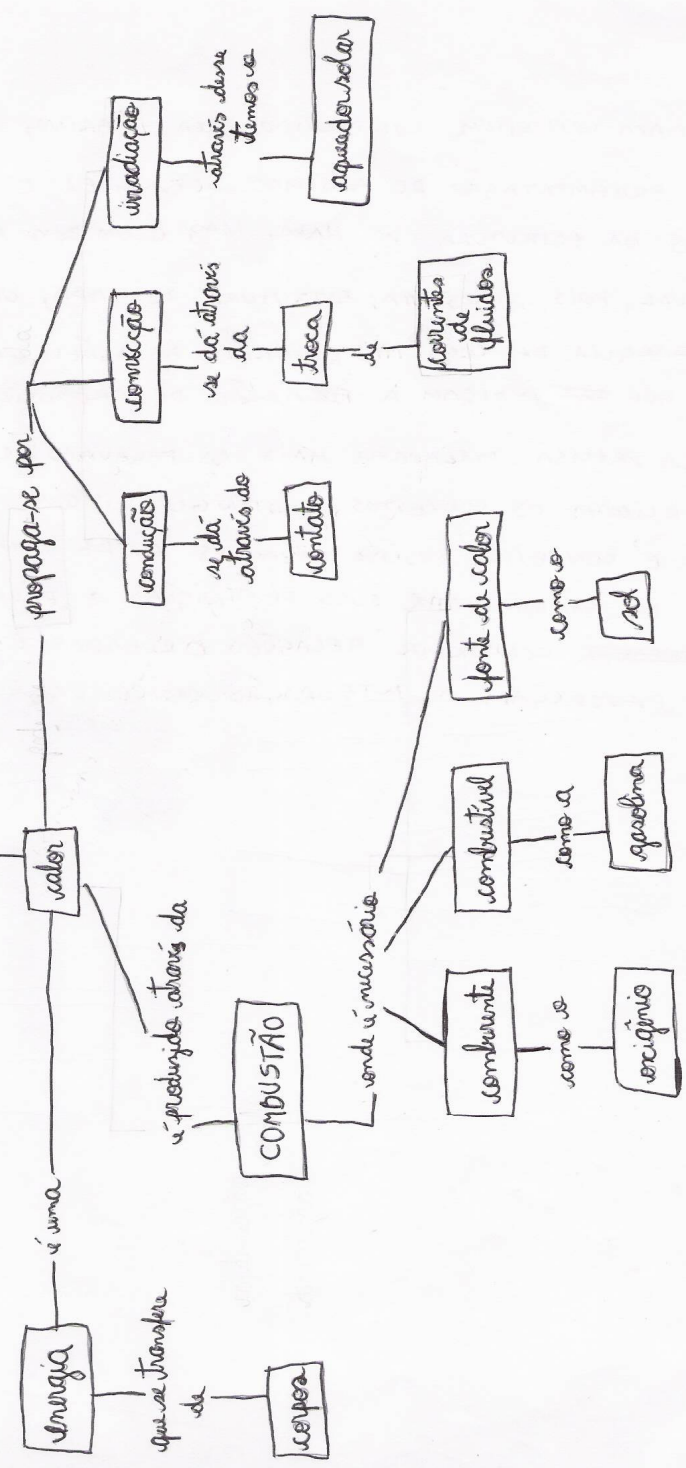 calor
é uma
energia
que se transfere
de
corpos
é produzido através da
COMBUSTÃO
onde é necessário
comburente
como o
oxigênio
combustível
como a
gasolina
fonte de calor
como o
sol
propaga-se por
condução
se dá
através do
contato
convecção
se dá através
da
troca
de
correntes
de
fluidos
irradiação
através desse
temos o
aquecedor solar